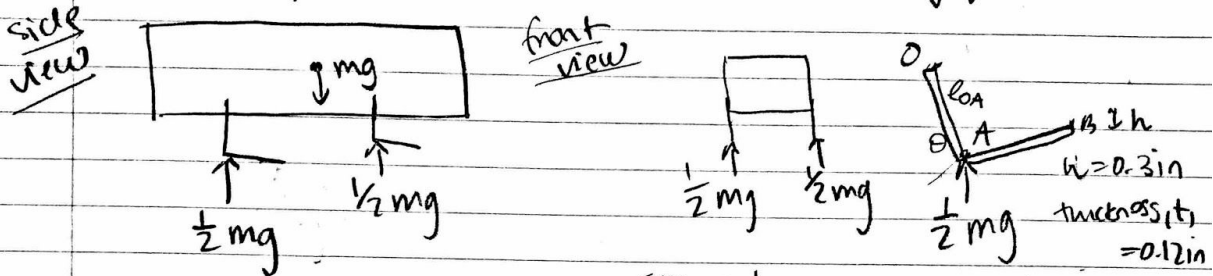 side
view
mg
½ mg
½ mg
front
view
½ mg
½ mg
O
l_OA
θ
A
B
h
h = 0.3in
thickness, t,
= 0.12in
½ mg